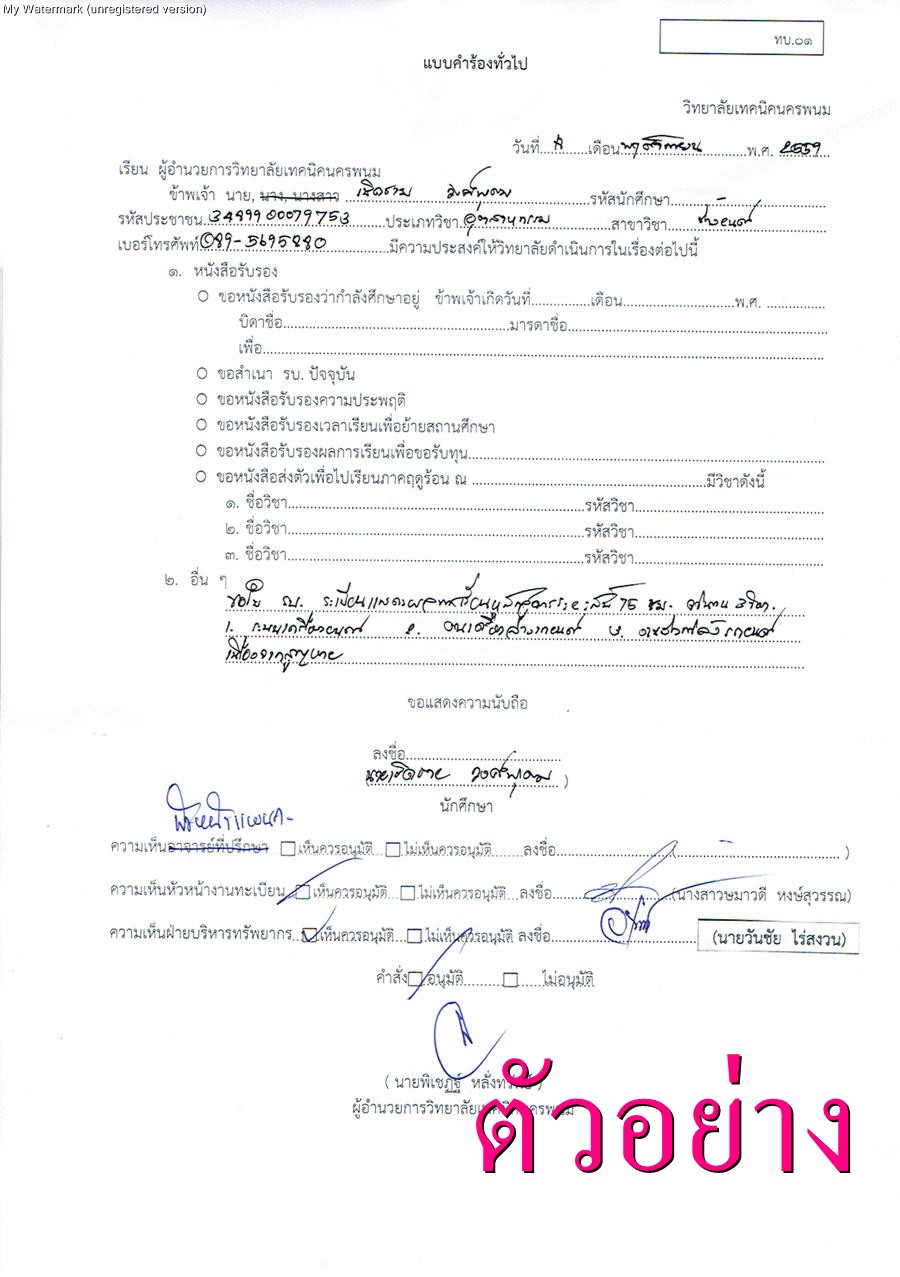 My Watermark (unregistered version)
ทบ.๐๑
แบบคำร้องทั่วไป
วิทยาลัยเทคนิคนครพนม
วันที่.... เดือนพฤศจิกายน.........พ.ศ. 2559
เรียน ผู้อำนวยการวิทยาลัยเทคนิคนครพนม
ข้าพเจ้า นาย, นาง, นางสาว เชิดชาย วงศ์พุดม รหัสนักศึกษา............-............
รหัสประชาชน 3489900079753 ประเภทวิชา อุตสาหกรรม สาขาวิชา ช่างยนต์
เบอร์โทรศัพท์ 089-5695880 มีความประสงค์ให้วิทยาลัยดำเนินการในเรื่องต่อไปนี้
๑. หนังสือรับรอง
ขอหนังสือรับรองว่ากำลังศึกษาอยู่ ข้าพเจ้าเกิดวันที่...............เดือน............................พ.ศ. ..............
บิดาชื่อ.........................................................มารดาชื่อ................................................................
เพื่อ............................................................................................................................................
ขอสำเนา รบ. ปัจจุบัน
ขอหนังสือรับรองความประพฤติ
ขอหนังสือรับรองเวลาเรียนเพื่อย้ายสถานศึกษา
ขอหนังสือรับรองผลการเรียนเพื่อขอรับทุน.........................................................................................
ขอหนังสือส่งตัวเพื่อไปเรียนภาคฤดูร้อน ณ ...........................................................มีวิชาดังนี้
๑. ชื่อวิชา...........................................................................รหัสวิชา................................................
๒. ชื่อวิชา...........................................................................รหัสวิชา................................................
๓. ชื่อวิชา...........................................................................รหัสวิชา................................................
๒. อื่น ๆ
ขอใบ รบ. ระเบียนแสดงผลการเรียนหลักสูตรระยะสั้น 75 ชม. จำนวน 3 วิชา.
1. 2. 3.
เนื่องจากสูญหาย
ขอแสดงความนับถือ
ลงชื่อ.......................................
(นายเชิดชาย วงศ์พุดม )
นักศึกษา
หัวหน้าแผนก-
ความเห็นอาจารย์ที่ปรึกษา เห็นควรอนุมัติ.... ไม่เห็นควรอนุมัติ ลงชื่อ..............................(.............-............................ )
ความเห็นหัวหน้างานทะเบียน เห็นควรอนุมัติ.... ไม่เห็นควรอนุมัติ...ลงชื่อ..............................(นางสาวษมาวดี หงษ์สุวรรณ)
ความเห็นฝ่ายบริหารทรัพยากร เห็นควรอนุมัติ.... ไม่เห็นควรอนุมัติ ลงชื่อ.............................. (นายวันชัย ไร่สงวน)
คำสั่ง อนุมัติ.......... ......ไม่อนุมัติ
( นายพิเชฏฐ์ หลั่งทรัพย์ )
ผู้อำนวยการวิทยาลัยเทคนิคนครพนม
ตัวอย่าง